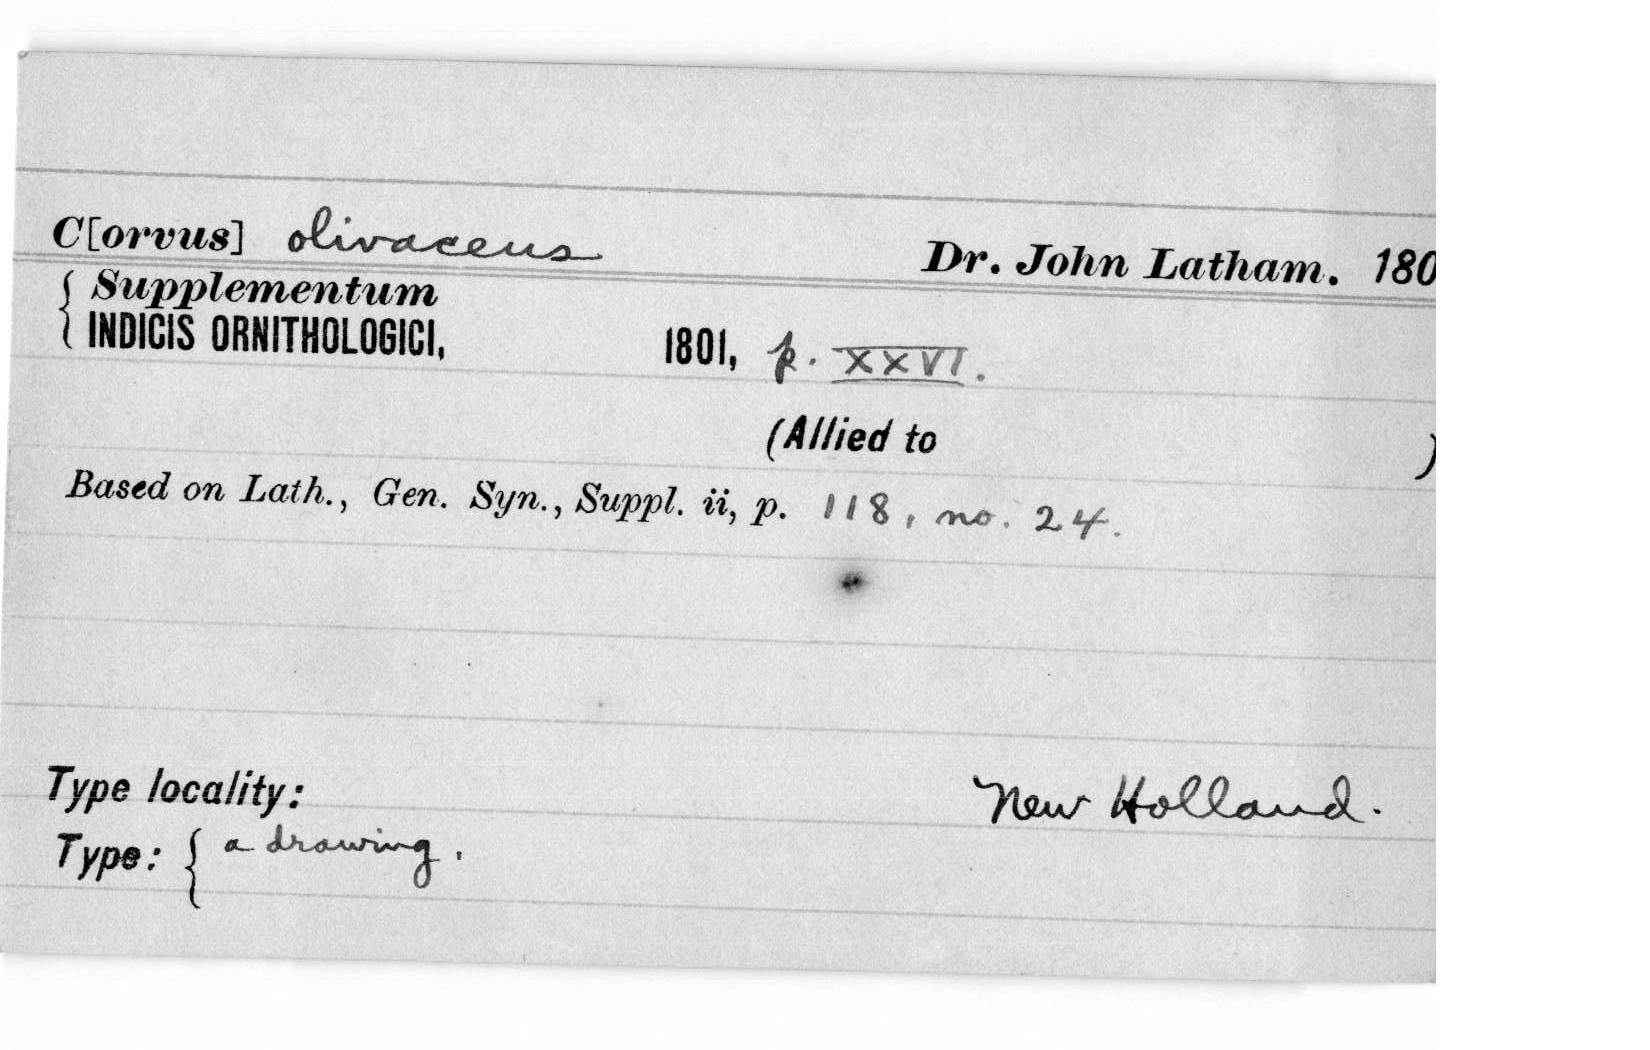 C[orvus] olivaceus Dr. John Latham. 180
{ Supplementum
INDICIS ORNITHOLOGICI, 1801, p. XXVI.
(Allied to )
Based on Lath., Gen. Syn., Suppl. ii, p. 118, no. 24.
Type locality: New Holland.
Type: { a drawing.